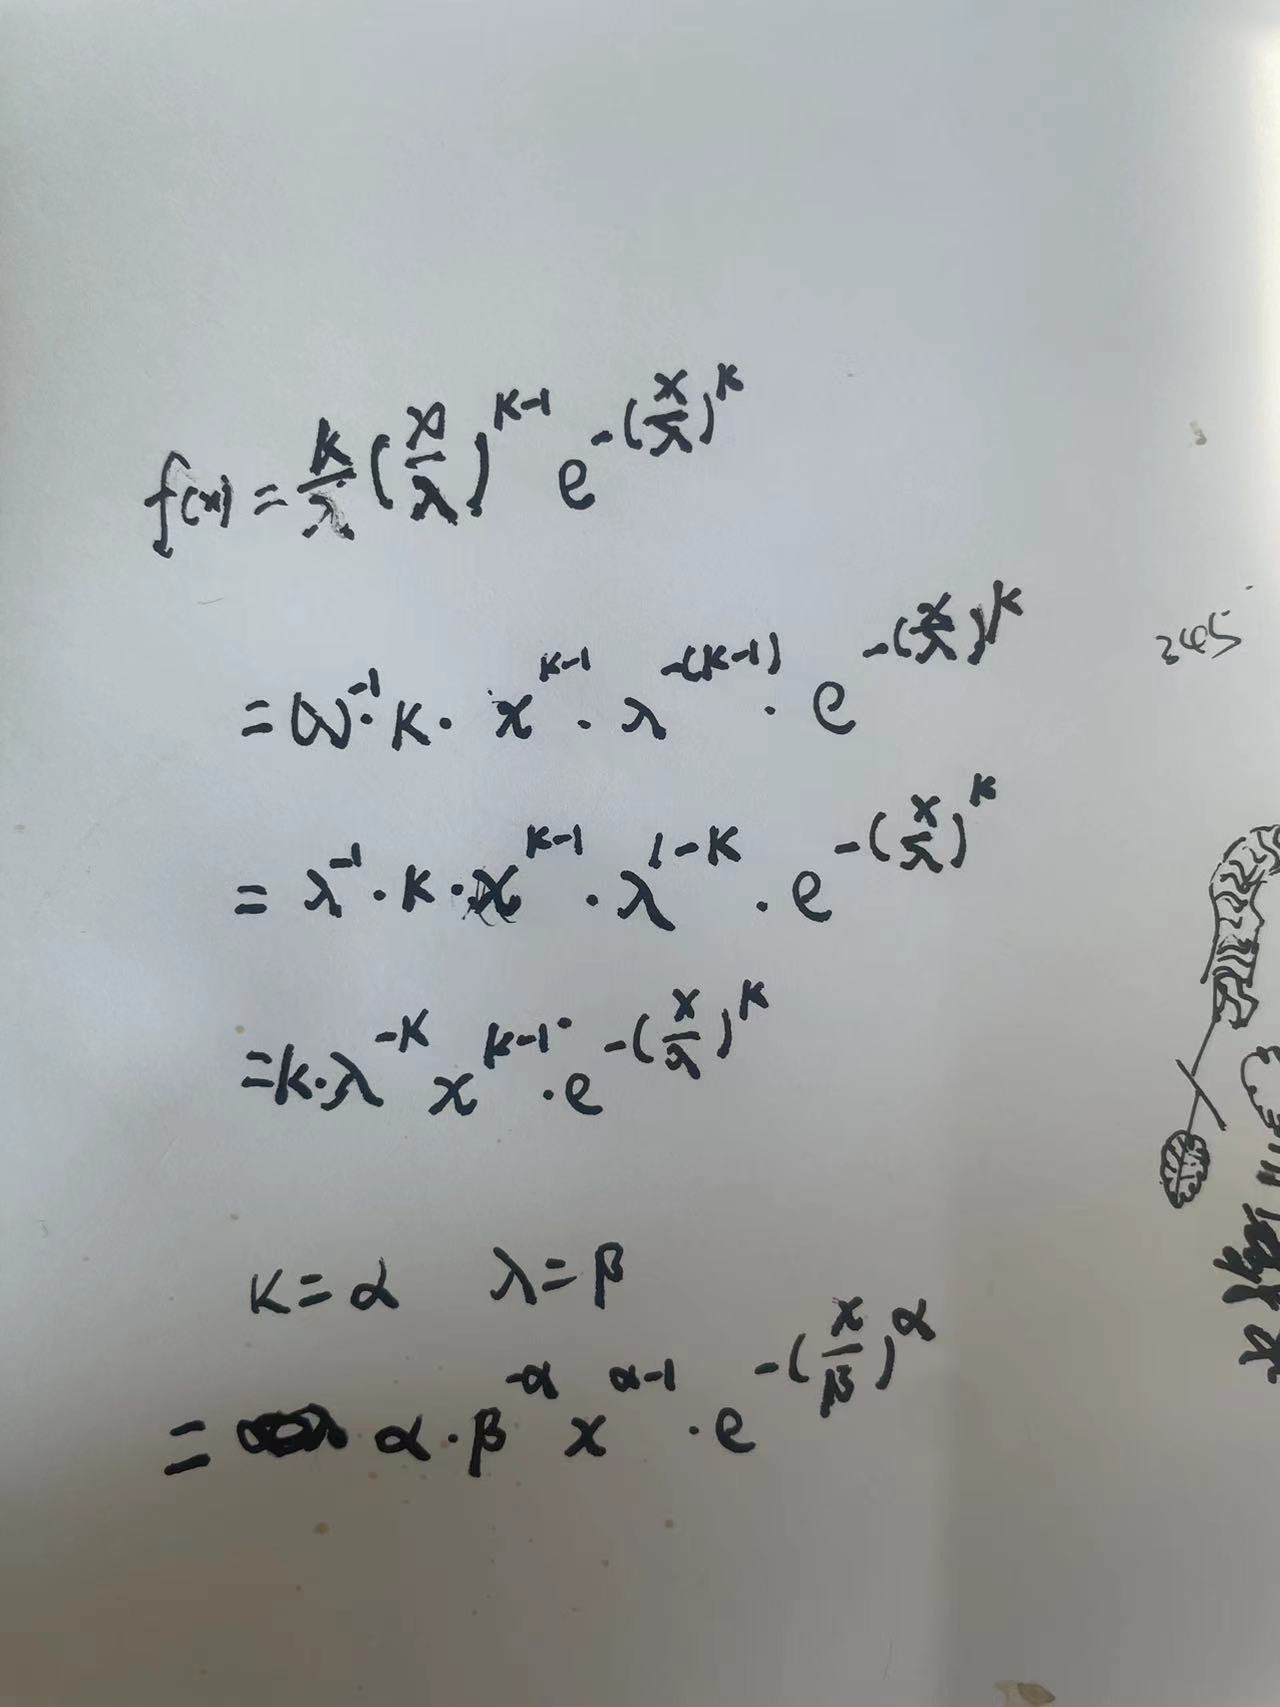 f(x) = k/λ (x/λ)^(k-1) e^(-(x/λ)^k)
= (λ)^(-1) · k · x^(k-1) · λ^(-(k-1)) · e^(-(x/λ)^k)
= λ^(-1) · k · x^(k-1) · λ^(1-k) · e^(-(x/λ)^k)
= k · λ^(-k) x^(k-1) · e^(-(x/λ)^k)
k = α λ = β
= α · β^(-α) x^(α-1) · e^(-(x/β)^α)